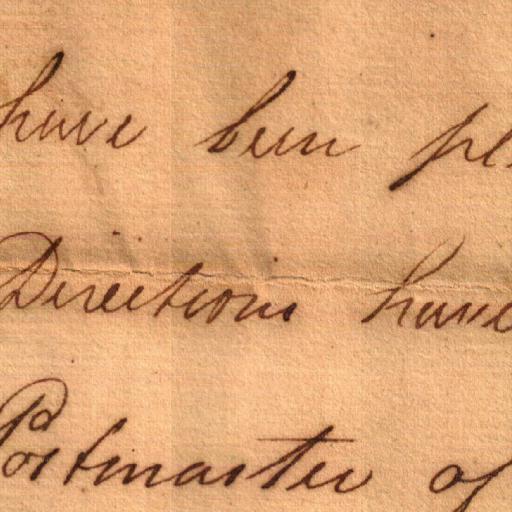 have been pl
Directions have
Postmaster of